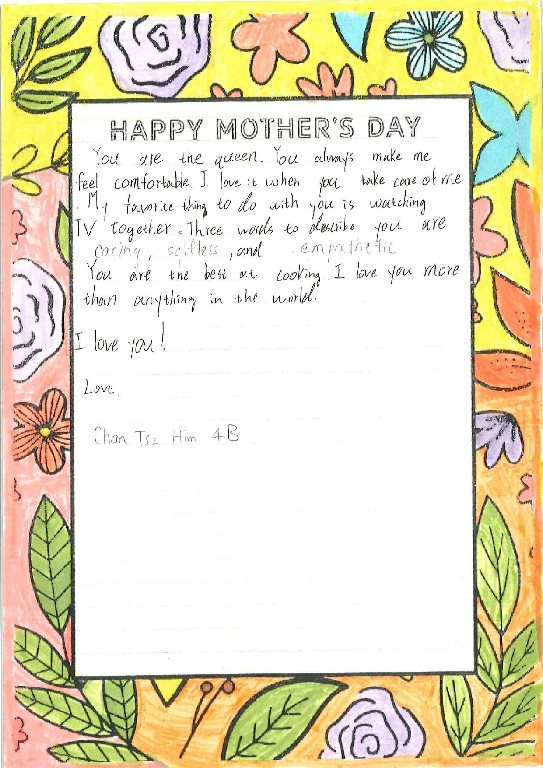 HAPPY MOTHER'S DAY
You are the queen. You always make me
feel comfortable. I love it when you take care of me
. My favorite thing to do with you is watching
TV together. Three words to describe you are
caring, selfless, and empathetic
You are the best at cooking. I love you more
than anything in the world.
I love you!
Love,
Chan Tsz Him 4B